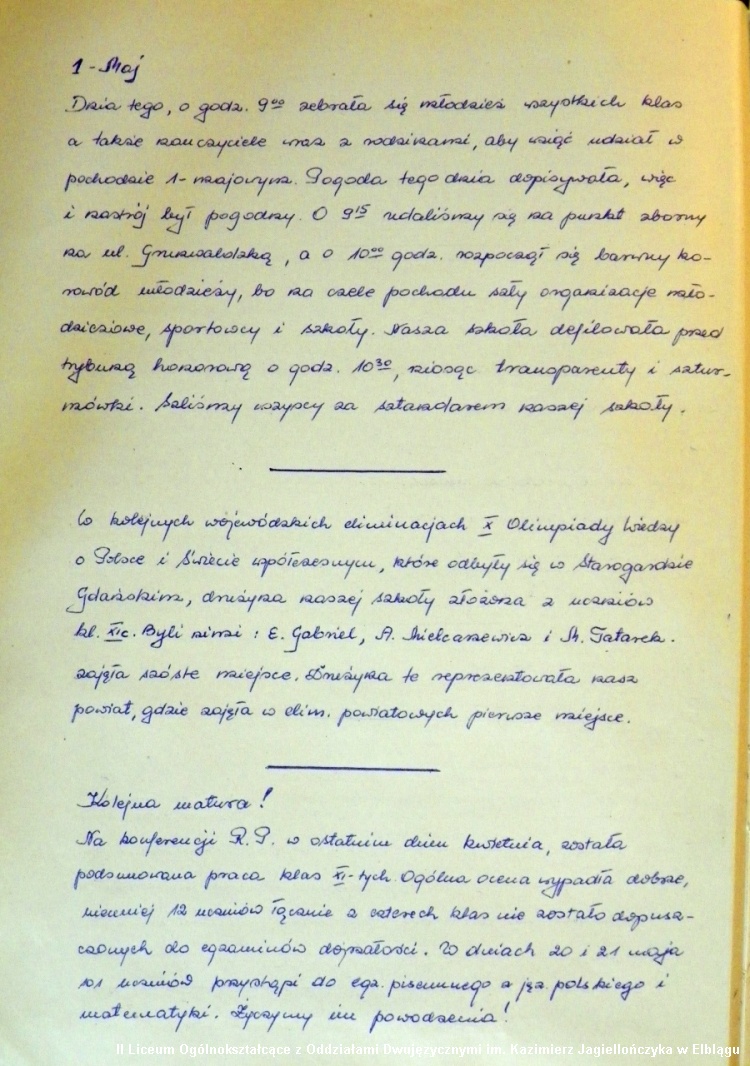 1 - Maj
Dnia tego, o godz. 9⁰⁰ zebrała się młodzież wszystkich klas
a także nauczyciele wraz z rodzinami, aby wziąć udział w
pochodzie 1-majowym. Pogoda tego dnia dopisywała, więc
i nastrój był pogodny. O 9¹⁵ udaliśmy się na punkt zborny
na ul. Grunwaldzką, a o 10⁰⁰ godz. rozpoczął się barwny ko-
rowód młodzieży, bo na czele pochodu szły organizacje mło-
dzieżowe, sportowcy i szkoły. Nasza szkoła defilowała przed
trybuną honorową o godz. 10³⁰, niosąc transparenty i sztur-
mówki. Szliśmy wszyscy za sztandarem naszej szkoły.
W kolejnych wojewódzkich eliminacjach X Olimpiady Wiedzy
o Polsce i Świecie współczesnym, które odbyły się w Starogardzie
Gdańskim, drużyna naszej szkoły złożona z uczniów
kl. XIc. Byli nimi: E. Gabriel, A. Mielcarzewicz i M. Tatarek.
zajęła szóste miejsce. Drużyna ta reprezentowała nasz
powiat, gdzie zajęła w elim. powiatowych pierwsze miejsce.
Kolejna matura!
Na konferencji R.P. w ostatnim dniu kwietnia, została
podsumowana praca klas XI-tych. Ogólna ocena wypadła dobrze,
niemniej 12 uczniów łącznie z czterech klas nie zostało dopusz-
czonych do egzaminów dojrzałości. W dniach 20 i 21 maja
101 uczniów przystąpi do egz. pisemnego z jęz. polskiego i
matematyki. Życzymy im powodzenia!
II Liceum Ogólnokształcące z Oddziałami Dwujęzycznymi im. Kazimierz Jagiellończyka w Elblągu